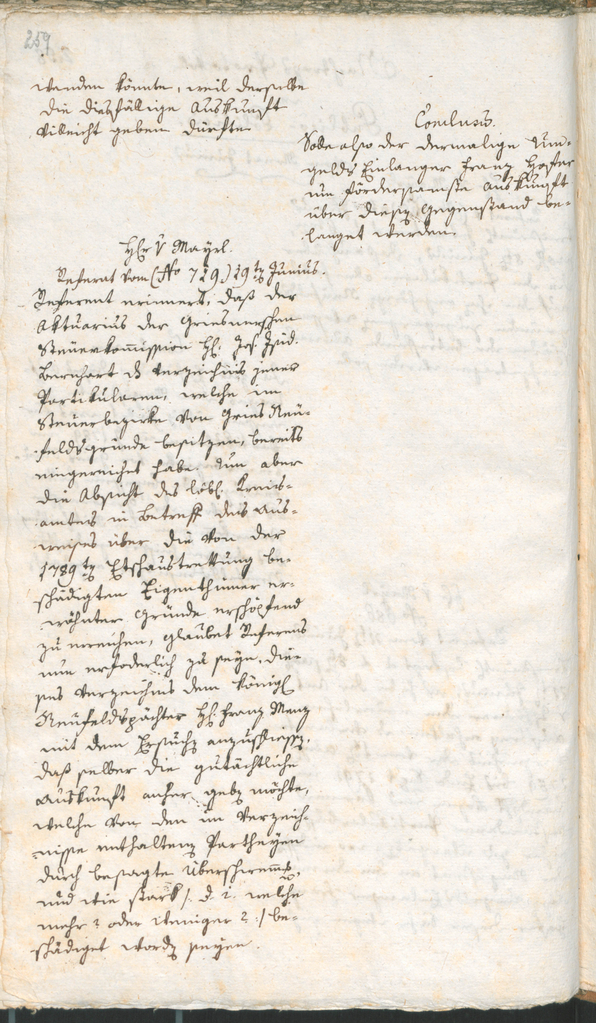 259
werden könnte, weil derselbe
die diesfällige Auskunft
villeicht geben dürfte.
Conclusum.
Solle also der dermalige Um-
gelds Einlanger Franz Hofer
um fördersamste Auskunft
über diesen Gegenstand be-
langet werden.
H. v Mayrl.
Referat vom (No 729) 19ten Junius.
Referent erinnert, daß der
Aktuarius der Griesnerschen
Steuerkommission H. Jos. Isid.
Bernhart das Verzeichnis jener
Partikularen, welche im
Steuerbezirke von Gries Neu-
feldsgründe besitzen, bereits
eingereichet habe. Um aber
die Absicht des löbl. Kreis-
amtes in Betreff des Aus-
weises über die von der
1789ten Etschaustrettung be-
schädigten Eigenthümer er-
wähnter Gründe erschöpfend
zu erreichen, glaubet Referens
nun erforderlich zu seyn, die-
ses Verzeichnis dem königl.
Neufeldspächter H. Franz Menz
mit dem Ersuchen anzuschliessen,
daß selber die gutächtliche
Auskunft anher geben möchte,
welche von den im Verzeich-
nisse enthaltenen Partheyen
durch besagte Überschwemg.
und wie stark /: d. i. welche
mehr? oder weniger? :/ be-
schädiget worden seyen.